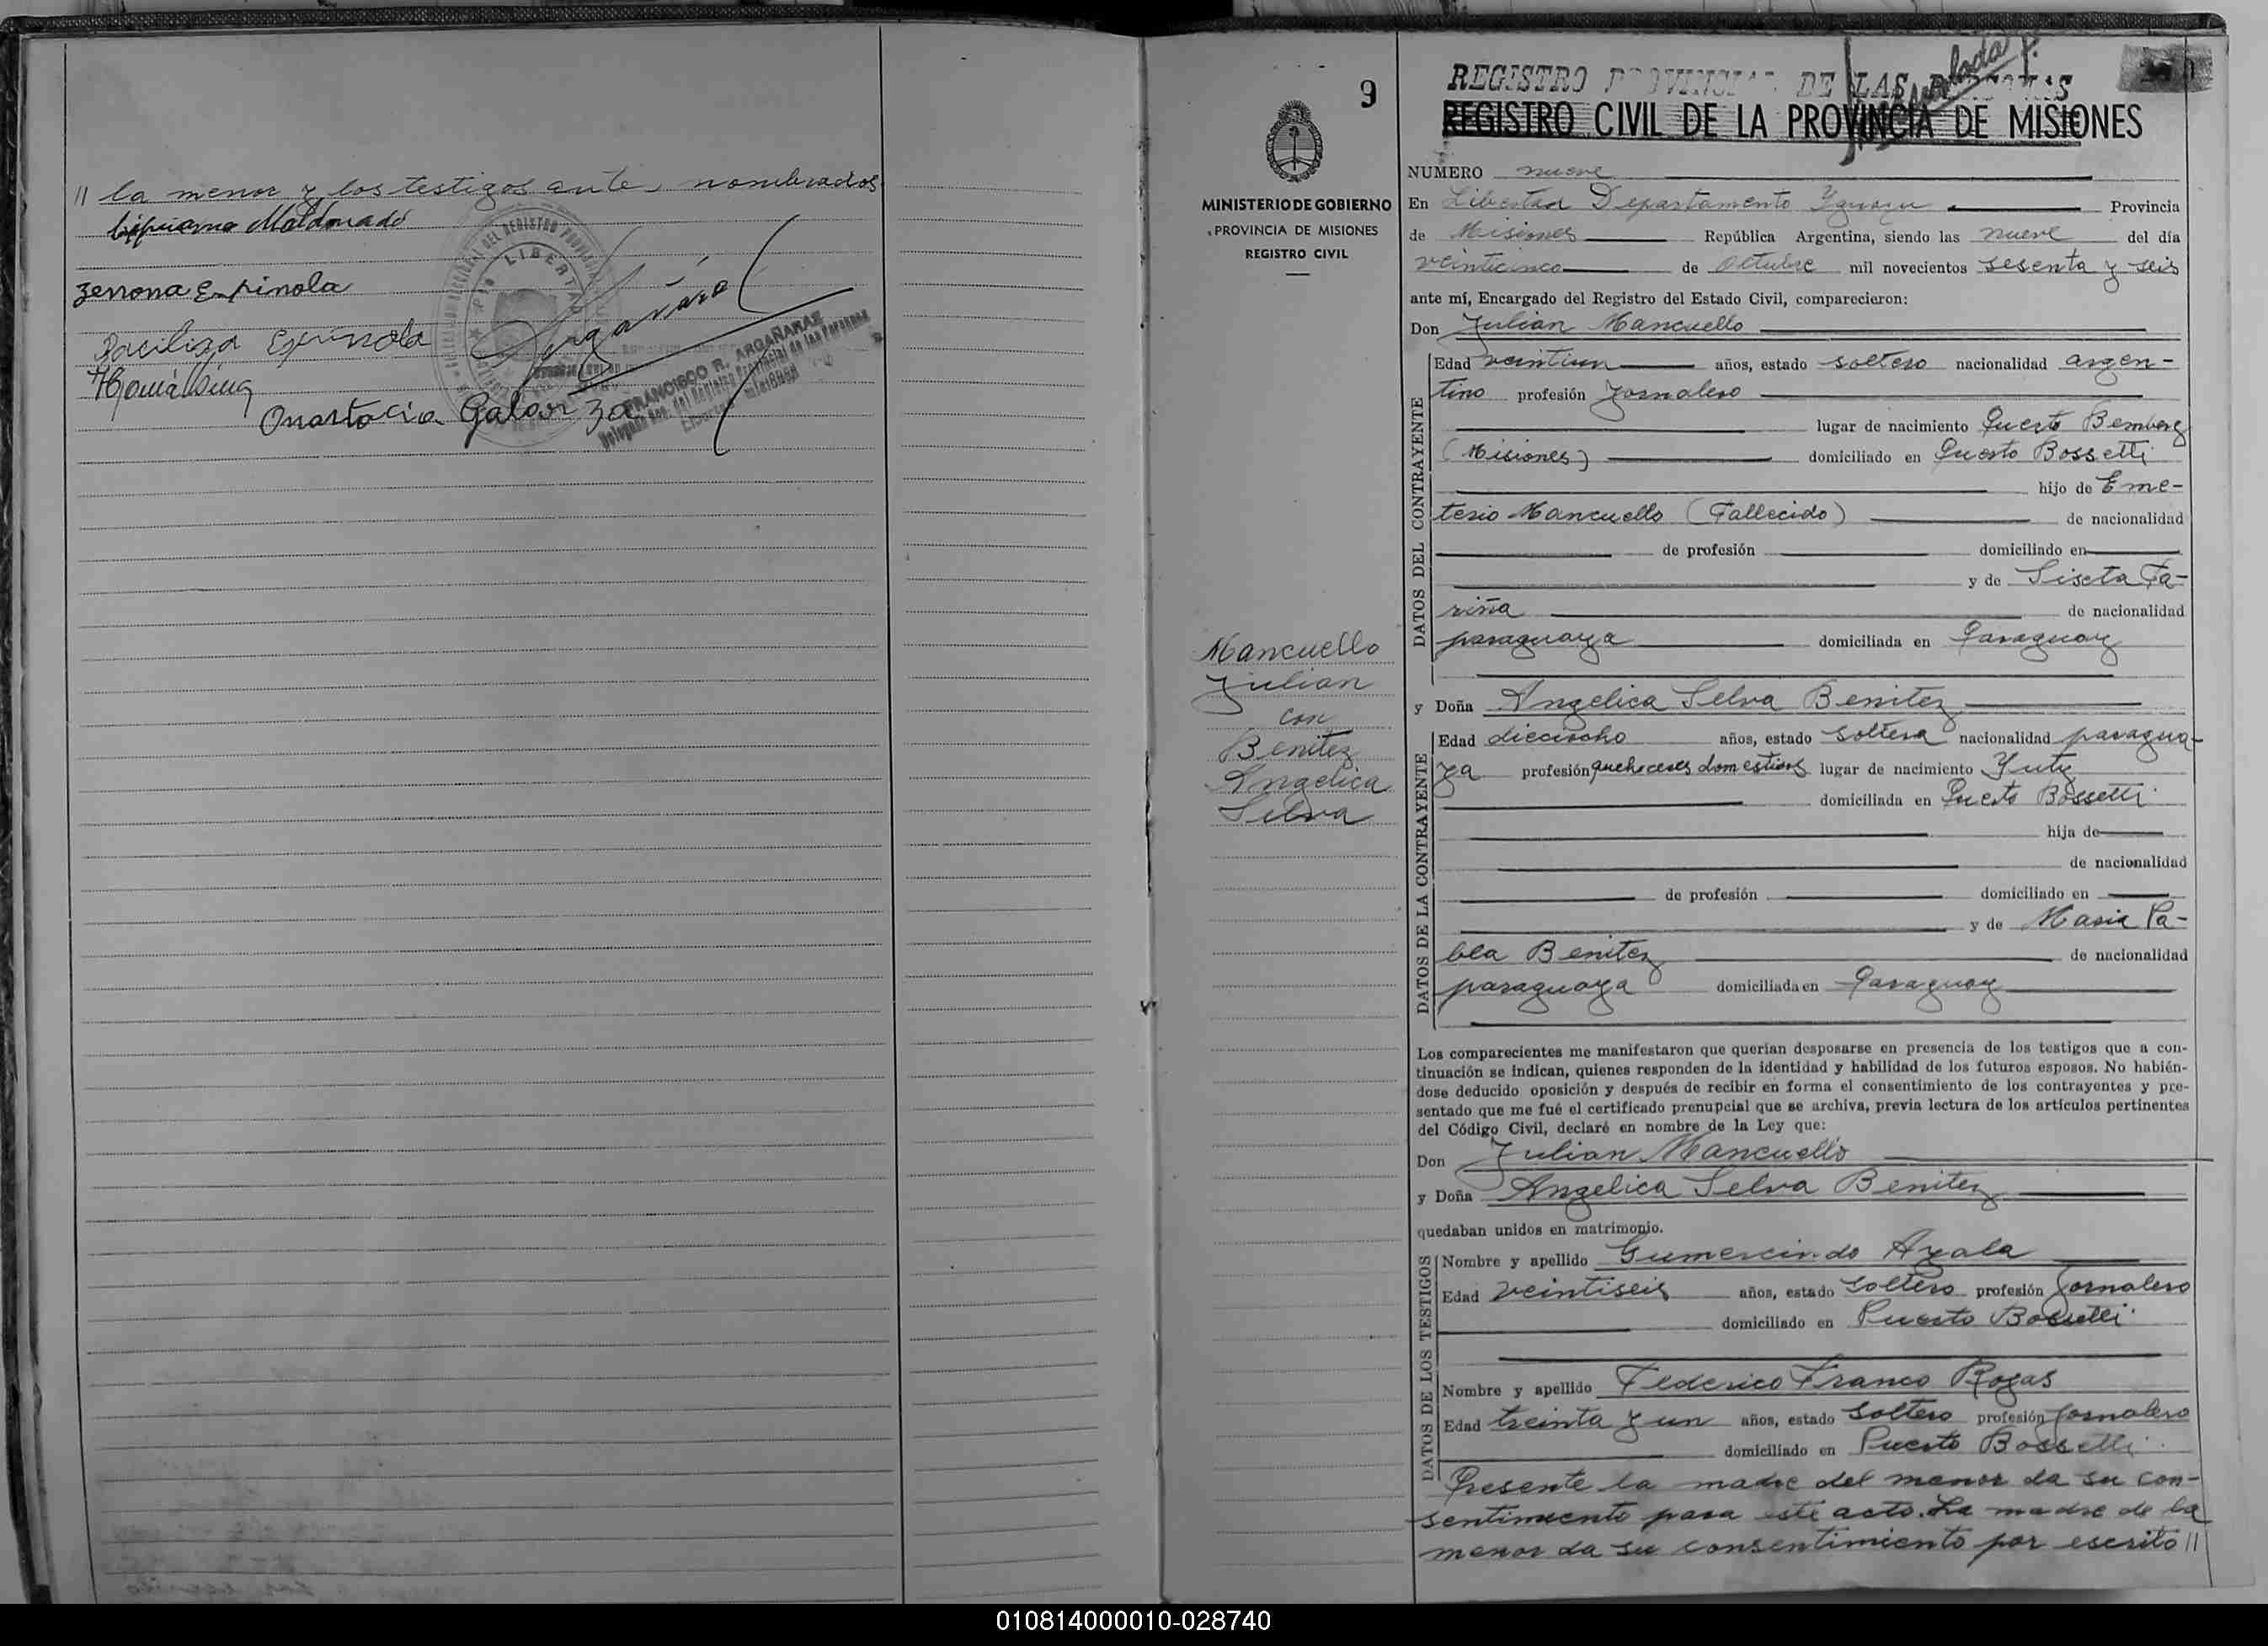 // la menor y los testigos ante nombrados
Cipriano Maldonado
zenona Espinola
Espinola
Galarza
LIBERTAD
FRANCISCO R. ARGAÑARAZ
9
MINISTERIO DE GOBIERNO
PROVINCIA DE MISIONES
REGISTRO CIVIL
Mancuello
Julian
con
Benitez
Angelica
Selva
REGISTRO PROVINCIAL DE LAS PERSONAS
REGISTRO CIVIL DE LA PROVINCIA DE MISIONES
NUMERO nueve
En Libertad Departamento Iguazu Provincia
de Misiones República Argentina, siendo las nueve del día
veinticinco de Octubre mil novecientos sesenta y seis
ante mí, Encargado del Registro del Estado Civil, comparecieron:
Don Julian Mancuello
DATOS DEL CONTRAYENTE
Edad veintiun años, estado soltero nacionalidad argen-
tino profesión Jornalero
lugar de nacimiento Puerto Bemberg
(Misiones) domiciliado en Puerto Bossetti
hijo de Eme-
terio Mancuello (Fallecido) de nacionalidad
de profesión domiciliado en
y de Liseta Fa-
riña de nacionalidad
paraguaya domiciliada en Paraguay
y Doña Angelica Selva Benitez
DATOS DE LA CONTRAYENTE
Edad dieciocho años, estado soltera nacionalidad paragua-
ya profesión quehaceres domesticos lugar de nacimiento Yuty
domiciliada en Puerto Bossetti
hija de
de nacionalidad
de profesión domiciliado en
y de Maria Pa-
bla Benitez de nacionalidad
paraguaya domiciliada en Paraguay
Los comparecientes me manifestaron que querían desposarse en presencia de los testigos que a con-
tinuación se indican, quienes responden de la identidad y habilidad de los futuros esposos. No habién-
dose deducido oposición y después de recibir en forma el consentimiento de los contrayentes y pre-
sentado que me fué el certificado prenupcial que se archiva, previa lectura de los artículos pertinentes
del Código Civil, declaré en nombre de la Ley que:
Don Julian Mancuello
y Doña Angelica Selva Benitez
quedaban unidos en matrimonio.
DATOS DE LOS TESTIGOS
Nombre y apellido Gumercindo Ayala
Edad veintiseis años, estado soltero profesión Jornalero
domiciliado en Puerto Bossetti
Nombre y apellido Federico Franco Rojas
Edad treinta y un años, estado soltero profesión Jornalero
domiciliado en Puerto Bossetti
Presente la madre del menor da su con-
sentimiento para este acto. La madre de la
menor da su consentimiento por escrito //
010814000010-028740